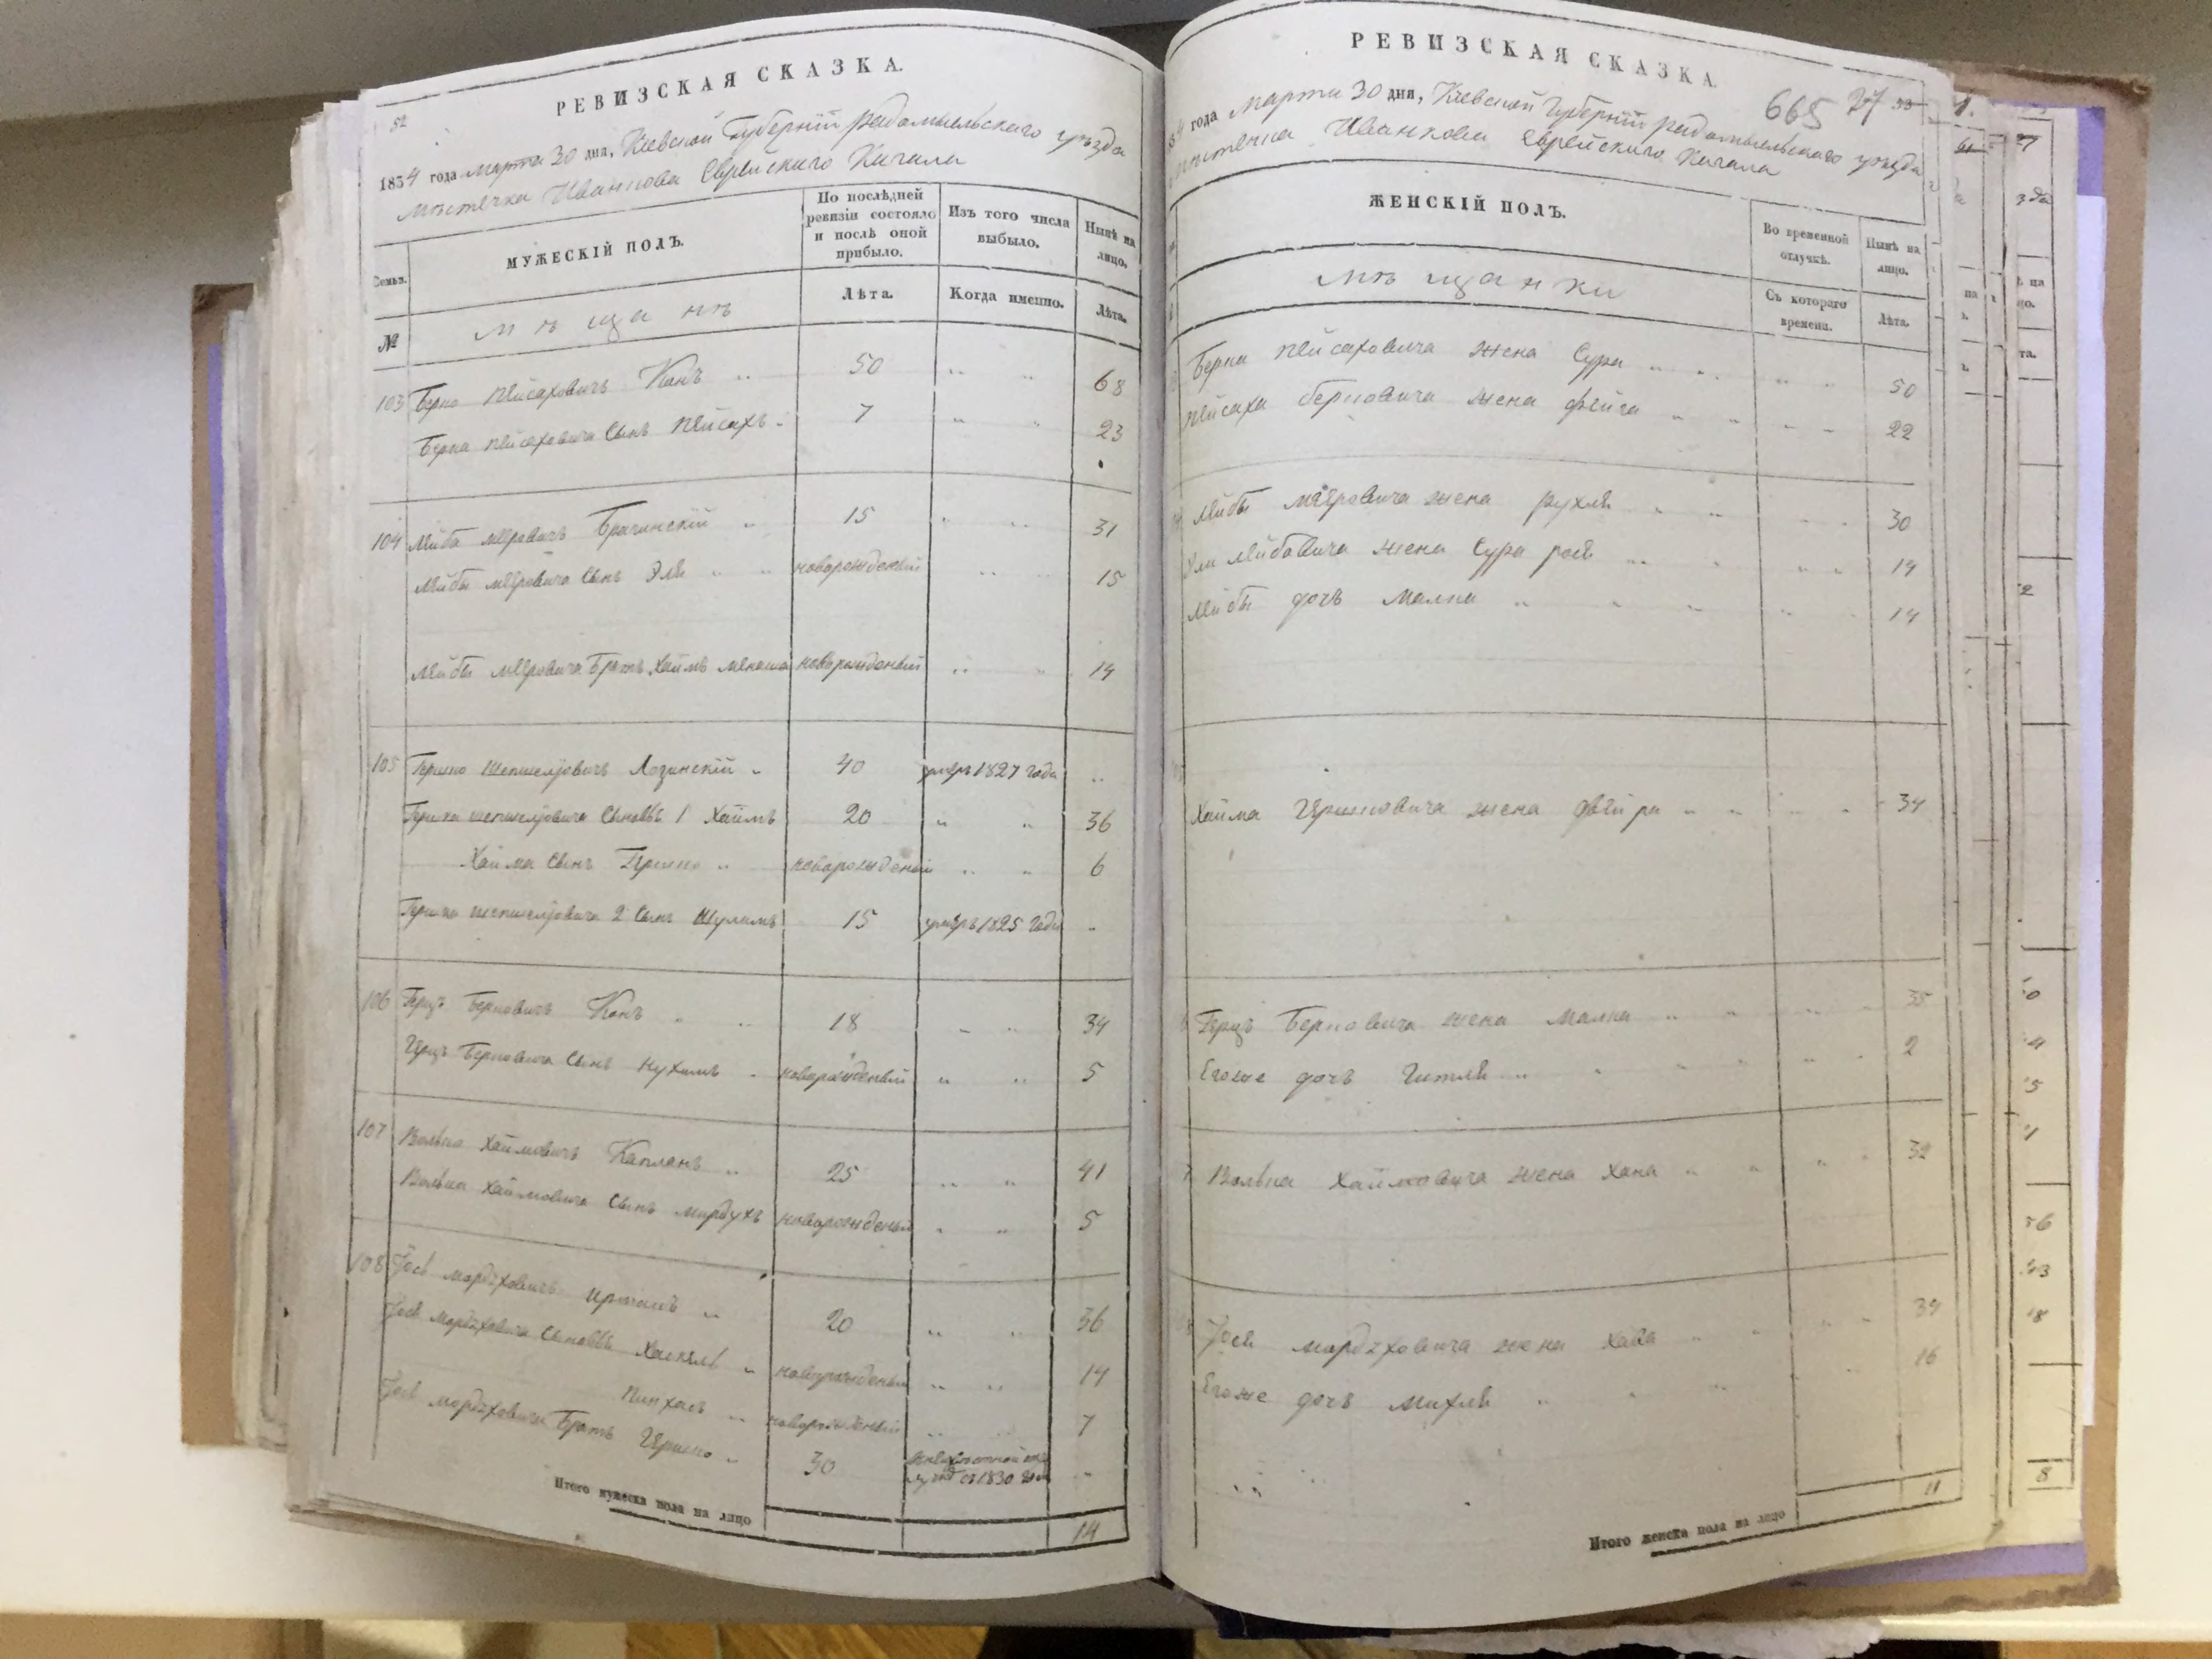 РЕВИЗСКАЯ СКАЗКА.
52
1834 года марта 30 дня, Кіевской Губерніи радомыльского уѣзда
мѣстечка Иванкова Еврейского Кагала
Семьи.
МУЖЕСКІЙ ПОЛЪ.
По послѣдней ревизіи состояло и послѣ оной прибыло.
Изъ того числа выбыло.
Нынѣ на лицо.
№
мѣщанѣ
Лѣта.
Когда именно.
Лѣта.
103 Берко Пейсаховичъ Конъ 50 " " 68
Берка Пейсаховича Сынъ Пейсахъ 7 " " 23
104 Лейба мѣеровичъ Брагинскій 15 " " 31
Лейбы мѣеровича Сынъ Эля новорожденый " " 15
Лейбы мѣеровича Братъ Хаимъ менаша новорожденый " " 14
105 Гершко Шепшелјовичъ Лозинскій 40 умеръ 1827 года "
Гершка шепшелјовича Сыновѣ 1 Хаймъ 20 " " 36
Хайма Сынъ Гершко новорожденый " " 6
Гершка шепшелјовича 2 Сынъ Шулимъ 15 умеръ 1825 года "
106 Герцъ Берковичъ Конъ 18 " " 34
Герцъ Берковича Сынъ Нухимъ новорожденый " " 5
107 Волько Хаймовичъ Капланъ 25 " " 41
Волька Хаймовича Сынъ мордухъ новорожденый " " 5
108 Јось мордуховичъ 20 " " 36
Јося мордуховича Сыновѣ Хаскель новорожденый " " 14
Пинхасъ новорожденый " " 7
Јося мордуховича Братъ Гершко 30 1830 "
Итого мужеска пола на лицо 14
РЕВИЗСКАЯ СКАЗКА.
665 27 53
года марта 30 дня, Кіевской Губерніи радомыльского уѣзда
мѣстечка Иванкова Еврейского Кагала
ЖЕНСКІЙ ПОЛЪ.
Во временной отлучкѣ.
Нынѣ на лицо.
мѣщанки
Съ котораго времени.
Лѣта.
Берка Пейсаховича жена Сура " " 50
Пейсаха берковича жена фейга " " 22
Лейбы мѣеровича жена рухля " " 30
Эли Лейбовича жена Сура роса " " 14
Лейбы дочъ Малка " " 14
Хайма Гершковича жена фейга " " 34
Герцъ Берковича жена Малка " " 35
Егоже дочъ Гитля " " 2
Волька Хаймовича жена Хана " " 32
Јося мордуховича жена Хава " " 34
Егоже дочъ Михля " " 16
Итого женска пола на лицо 11